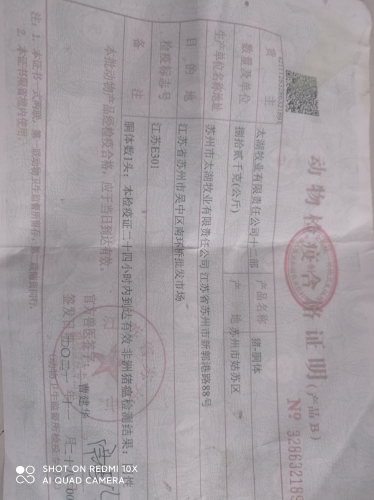 动物检疫合格证明(产品B)
No 32863218
货主 太湖牧业有限责任公司十二部 产品名称 猪-胴体
数量及单位 捌拾贰千克(公斤) 产地 苏州市姑苏区
生产单位名称地址 苏州市太湖牧业有限责任公司 江苏省苏州市新郭港路88号
目的地 江苏省苏州市吴中区南环桥批发市场
检疫标志号 江苏E301
备注 胴体数1头; 本检疫证二十四小时内到达有效 非洲猪瘟检测结果: 性
本批动物产品经检疫合格, 应于当日到达有效。
官方兽医签字: 曹建华
签发日期
注: 1. 本证书一式两联, 第一联
2. 本证书限省境内使用。
SHOT ON REDMI 10X
AI QUAD CAMERA